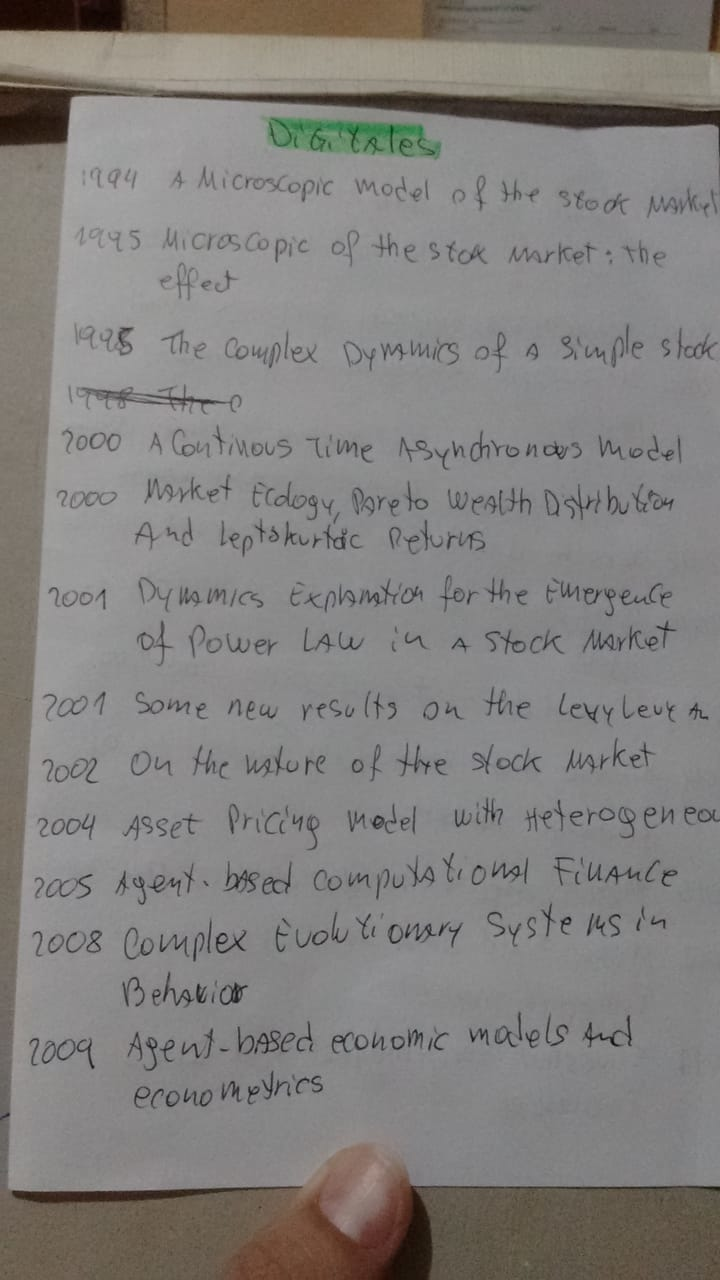 DiGitales
1994 A Microscopic model of the stock Market
1995 Microscopic of the stok Market: the
effect
1998 The Complex Dynamics of a simple stock
1998 The C
2000 A Continous Time Asynchronous Model
2000 Market Ecology, Pareto Wealth Distribution
And Leptokurtic Returns
2001 Dynamics Explanation for the Emergence
of Power LAW in A Stock Market
2001 Some new results on the Levy Levy
2002 On the nature of the stock Market
2004 Asset Pricing Model with Heterogeneou
2005 Agent-based computational Finance
2008 Complex Evolutionary Systems in
Behavior
2009 Agent-based economic models And
econometrics